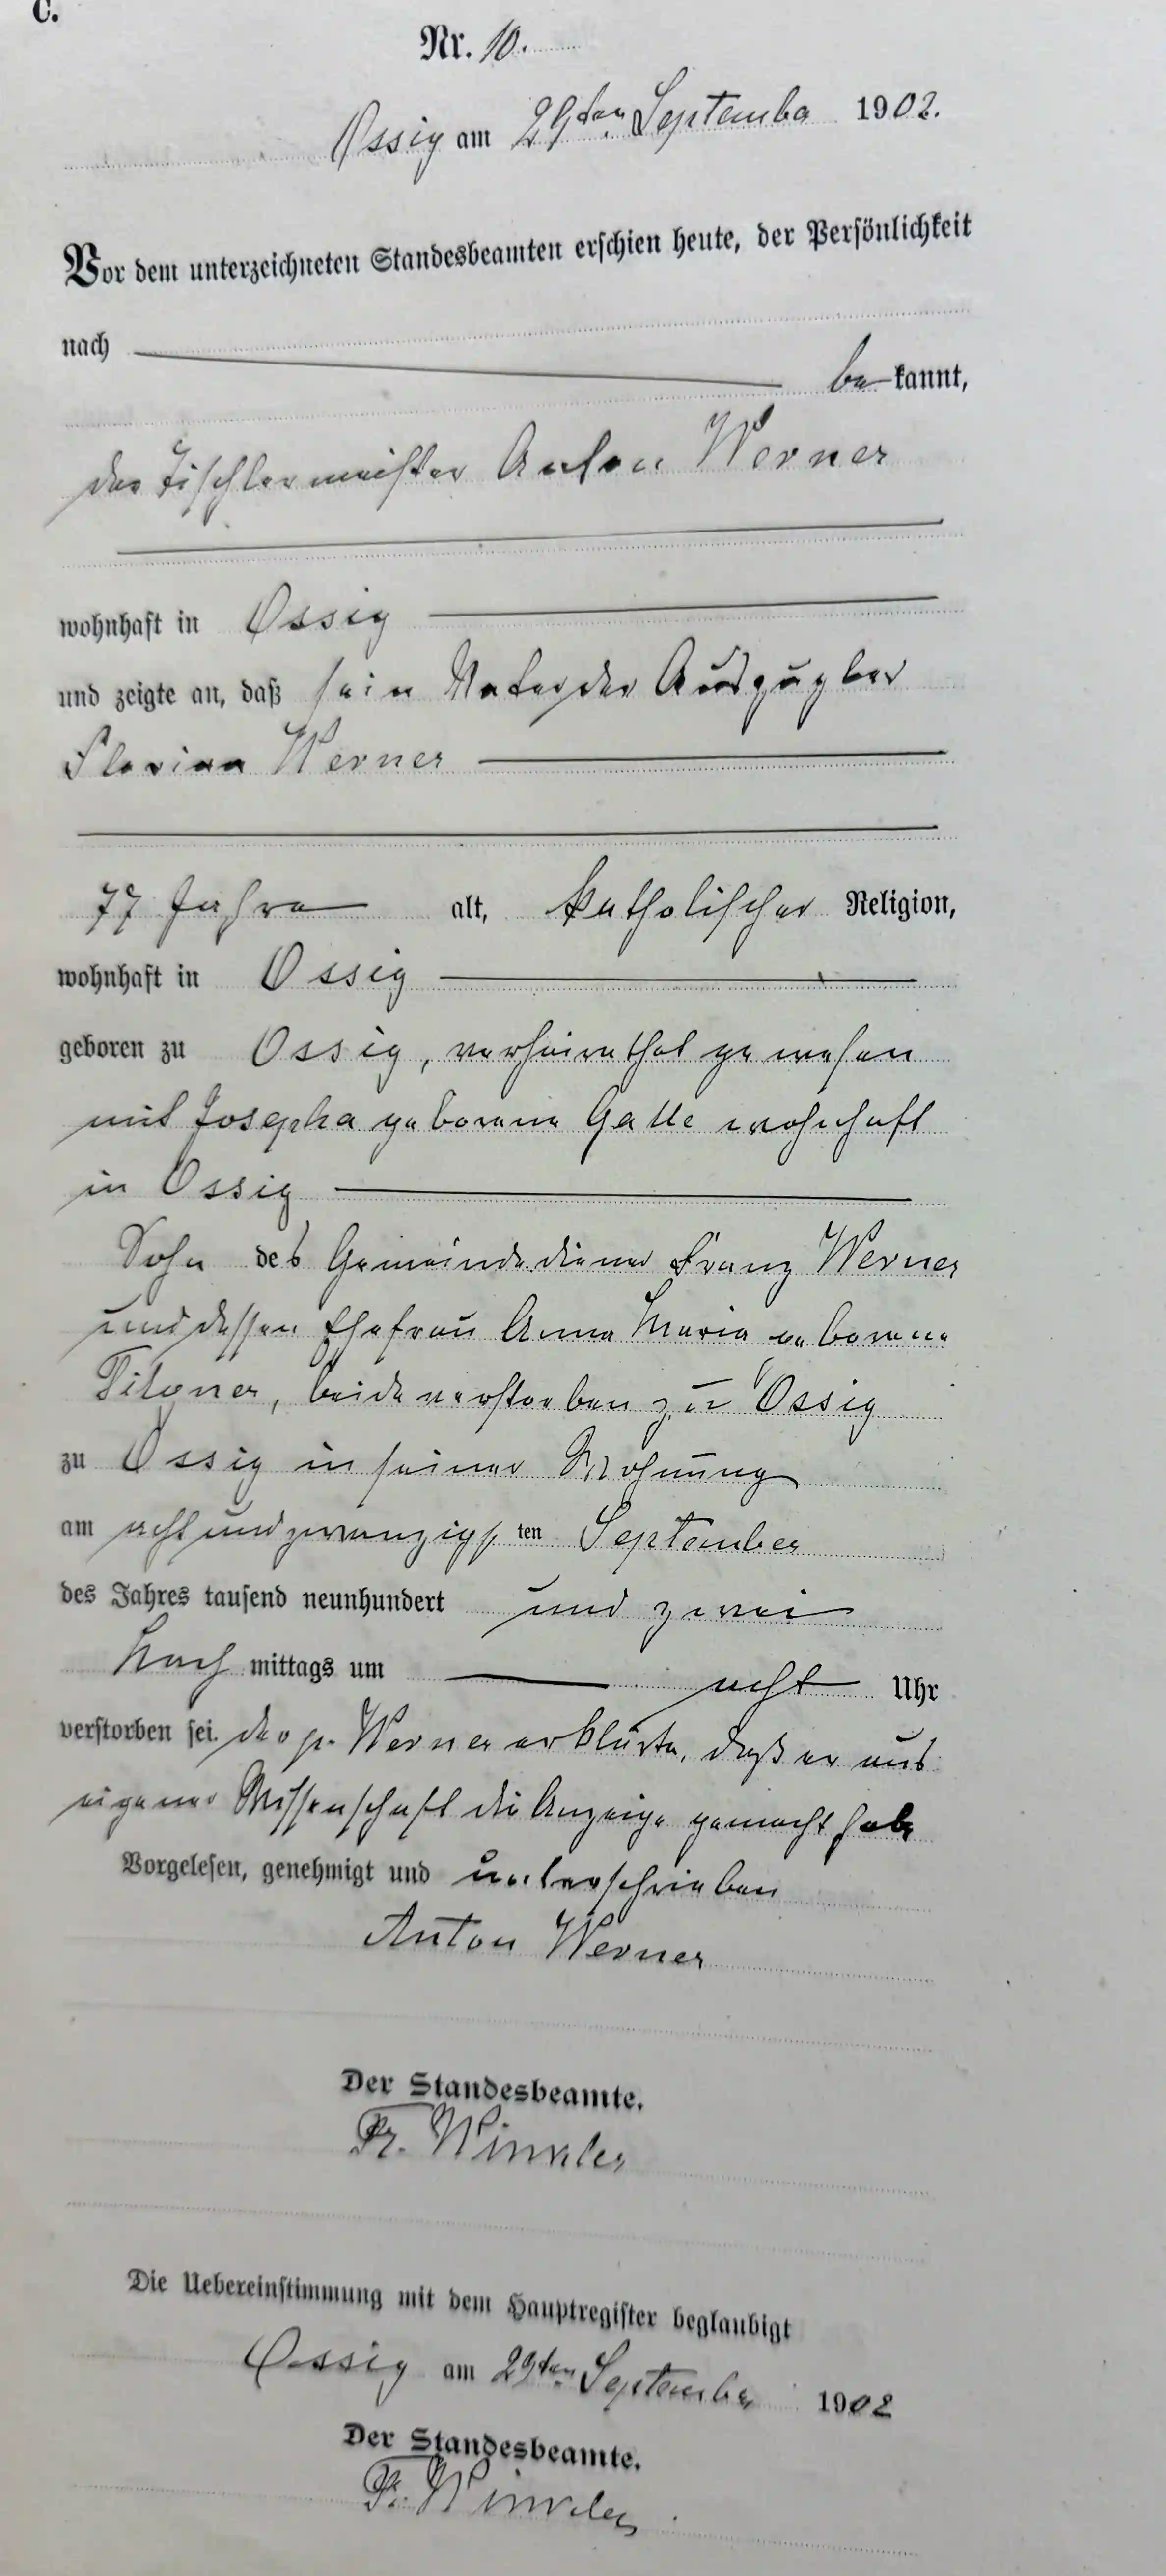 C.
Nr. 10.
Ossig am 29ten September 1902.
Vor dem unterzeichneten Standesbeamten erschien heute, der Persönlichkeit
nach
be kannt,
der Tischlermeister Anton Werner
wohnhaft in Ossig
und zeigte an, daß sein Vater der Auszügler
Florian Werner
77 Jahre alt, katholischer Religion,
wohnhaft in Ossig
geboren zu Ossig, verheirathet gewesen
mit Josepha geborene Galle wohnhaft
in Ossig
Sohn des Gemeindediener Franz Werner
und dessen Ehefrau Anna Maria geborene
beide verstorben zu Ossig
zu Ossig in seiner Wohnung
am achtundzwanzigs ten September
des Jahres tausend neunhundert und zwei
Nach mittags um acht Uhr
verstorben sei. der p. Werner erklärte, daß er aus
eigener Wissenschaft die Anzeige gemacht habe
Vorgelesen, genehmigt und unterschrieben
Anton Werner
Der Standesbeamte.
Fr. Winkler
Die Uebereinstimmung mit dem Hauptregister beglaubigt
Ossig am 29ten September 1902
Der Standesbeamte.
Fr. Winkler